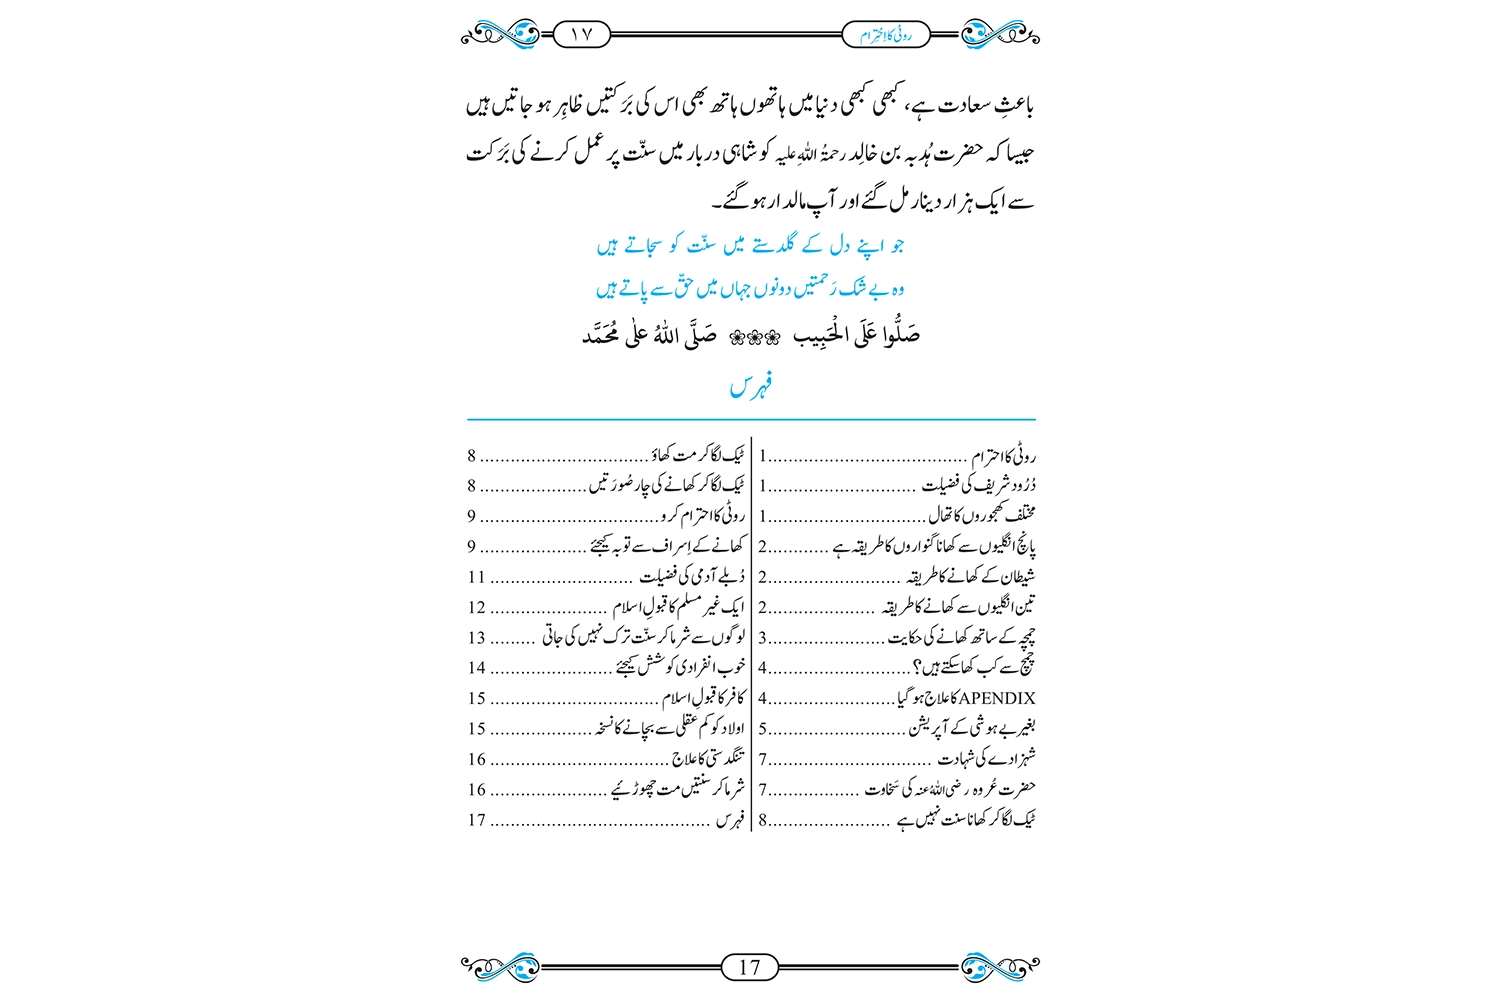 روٹی کا اِحْتِرام ۱۷
باعثِ سعادت ہے، کبھی کبھی دنیا میں ہاتھوں ہاتھ بھی اس کی بَرَکتیں ظاہِر ہو جاتیں ہیں
جیسا کہ حضرت ہُدبہ بن خالِد رحمۃُ اللہِ علیہ کو شاہی دربار میں سنّت پر عمل کرنے کی بَرَکت
سے ایک ہزار دینار مل گئے اور آپ مالدار ہو گئے۔
جو اپنے دل کے گلدستے میں سنّت کو سجاتے ہیں
وہ بے شک رَحمتیں دونوں جہاں میں حقّ سے پاتے ہیں
صَلُّوا عَلَی الْحَبِیب ❀❀❀ صَلَّی اللہُ علٰی مُحَمَّد
فہرس
روٹی کا احترام ....................................... 1
دُرُود شریف کی فضیلت ............................. 1
مختلف کھجوروں کا تھال ............................... 1
پانچ انگلیوں سے کھانا گنواروں کا طریقہ ہے ............ 2
شیطان کے کھانے کا طریقہ .......................... 2
تین انگلیوں سے کھانے کا طریقہ ..................... 2
چمچہ کے ساتھ کھانے کی حکایت ....................... 3
چمچ سے کب کھا سکتے ہیں؟ ............................ 4
APENDIX کا علاج ہو گیا ......................... 4
بغیر بے ہوشی کے آپریشن ........................... 5
شہزادے کی شہادت ................................ 7
حضرت عُروہ رضی اللہُ عنہ کی سَخاوت .................. 7
ٹیک لگا کر کھانا سنت نہیں ہے ........................ 8
ٹیک لگا کر مت کھاؤ ................................. 8
ٹیک لگا کر کھانے کی چار صُورَتیں ..................... 8
روٹی کا احترام کرو ................................... 9
کھانے کے اِسراف سے توبہ کیجئے ..................... 9
دُبلے آدمی کی فضیلت ............................ 11
ایک غیر مسلم کا قبولِ اسلام ....................... 12
لوگوں سے شرما کر سنّت ترک نہیں کی جاتی ......... 13
خوب انفرادی کوشش کیجئے ........................ 14
کافر کا قبولِ اسلام ................................. 15
اولاد کو کم عقلی سے بچانے کا نسخہ .................... 15
تنگدستی کا علاج ................................... 16
شرما کر سنتیں مت چھوڑئیے ....................... 16
فہرس ........................................... 17
17